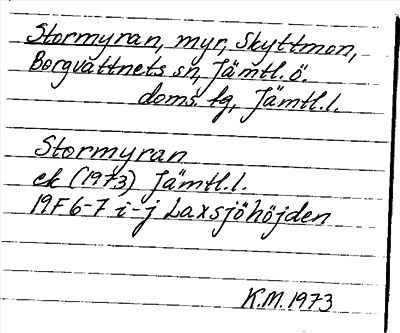 Stormyran, myr, Skyttmon,
Borgvattnets sn, Jämtl.ö.
doms. tg, Jämtl.l.
Stormyran
ek (1973) Jämtl.l.
19F 6-7 i-j Laxsjöhöjden
K.M. 1973